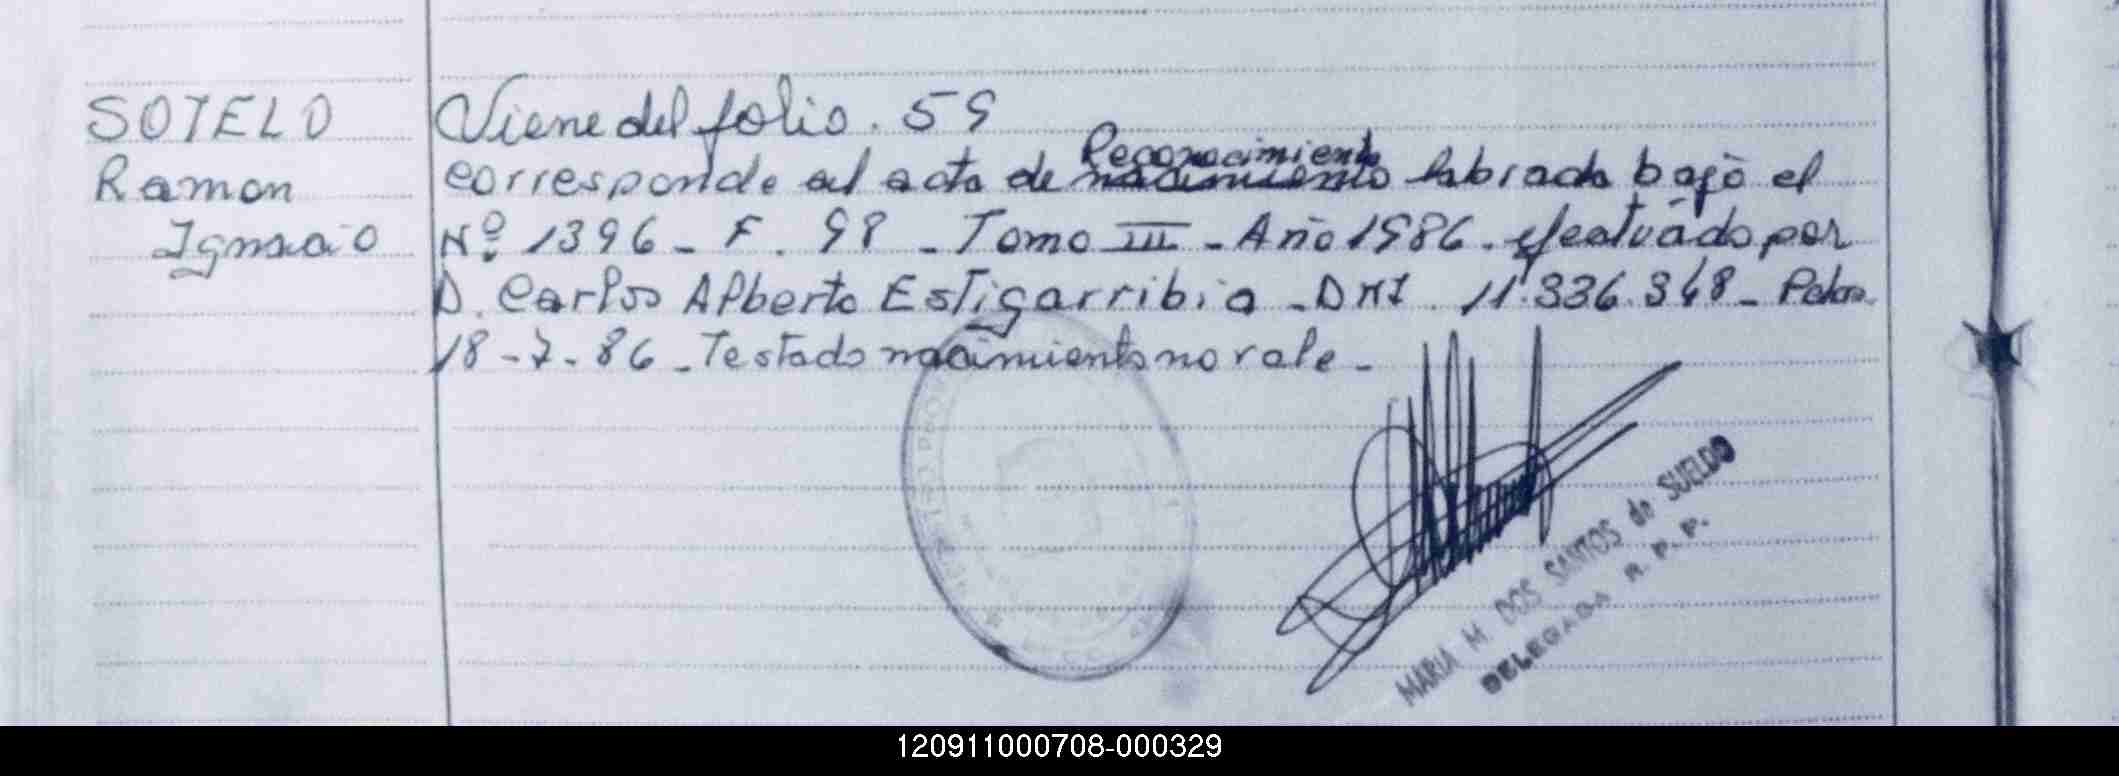 SOTELO
Ramon
Ignacio
Viene del folio. 59
Reconocimiento
corresponde al acta de nacimiento labrada bajo el
Nº 1396 - F. 98 - Tomo III - Año 1986. efectuado por
D. Carlos Alberto Estigarribia - DNI 11.336.348 -
18-7-86 - Testado nacimiento no vale -
MARIA M. DOS SANTOS de SUELDO
DELEGADA R. P. P.
120911000708-000329